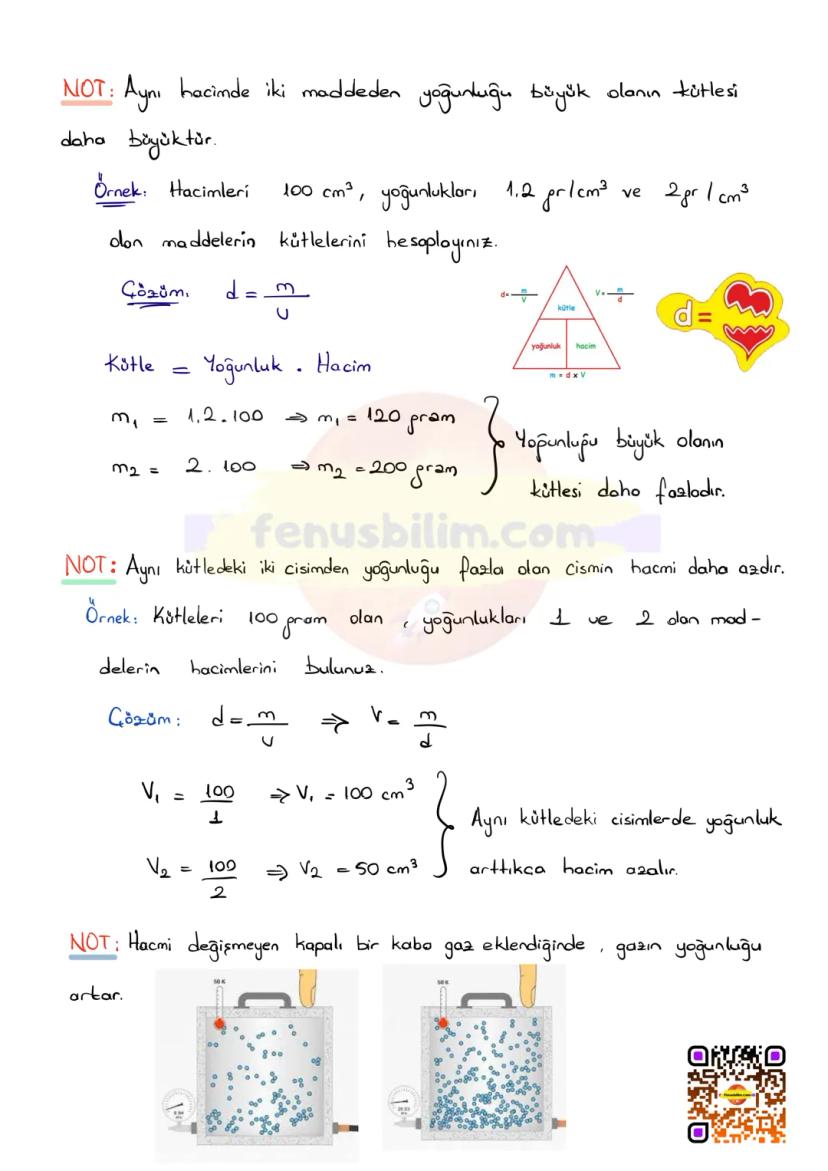 NOT: Aynı hacimde iki maddeden yoğunluğu büyük olanın kütlesi
daha büyüktür.
Örnek: Hacimleri 100 cm³, yoğunlukları 1.2 gr/cm³ ve 2gr/cm³
olan maddelerin kütlelerini hesaplayınız.
Çözüm: d = m/v
d= m/V
V= m/d
kütle
yoğunluk hacim
m = d x V
d =
Kütle = Yoğunluk . Hacim
m₁ = 1,2.100 ⇒ m₁ = 120 gram
m₂ = 2.100 ⇒ m₂ = 200 gram
Yoğunluğu büyük olanın
kütlesi daha fazladır.
fenusbilim.com
NOT: Aynı kütledeki iki cisimden yoğunluğu fazla olan cismin hacmi daha azdır.
Örnek: Kütleleri 100 gram olan, yoğunlukları 1 ve 2 olan mad-
delerin hacimlerini bulunuz.
Çözüm: d = m/v ⇒ V = m/d
V₁ = 100/1 ⇒ V₁ = 100 cm³
V₂ = 100/2 ⇒ V₂ = 50 cm³
Aynı kütledeki cisimlerde yoğunluk
arttıkça hacim azalır.
NOT: Hacmi değişmeyen kapalı bir kaba gaz eklendiğinde, gazın yoğunluğu
artar.
50 K
50 K